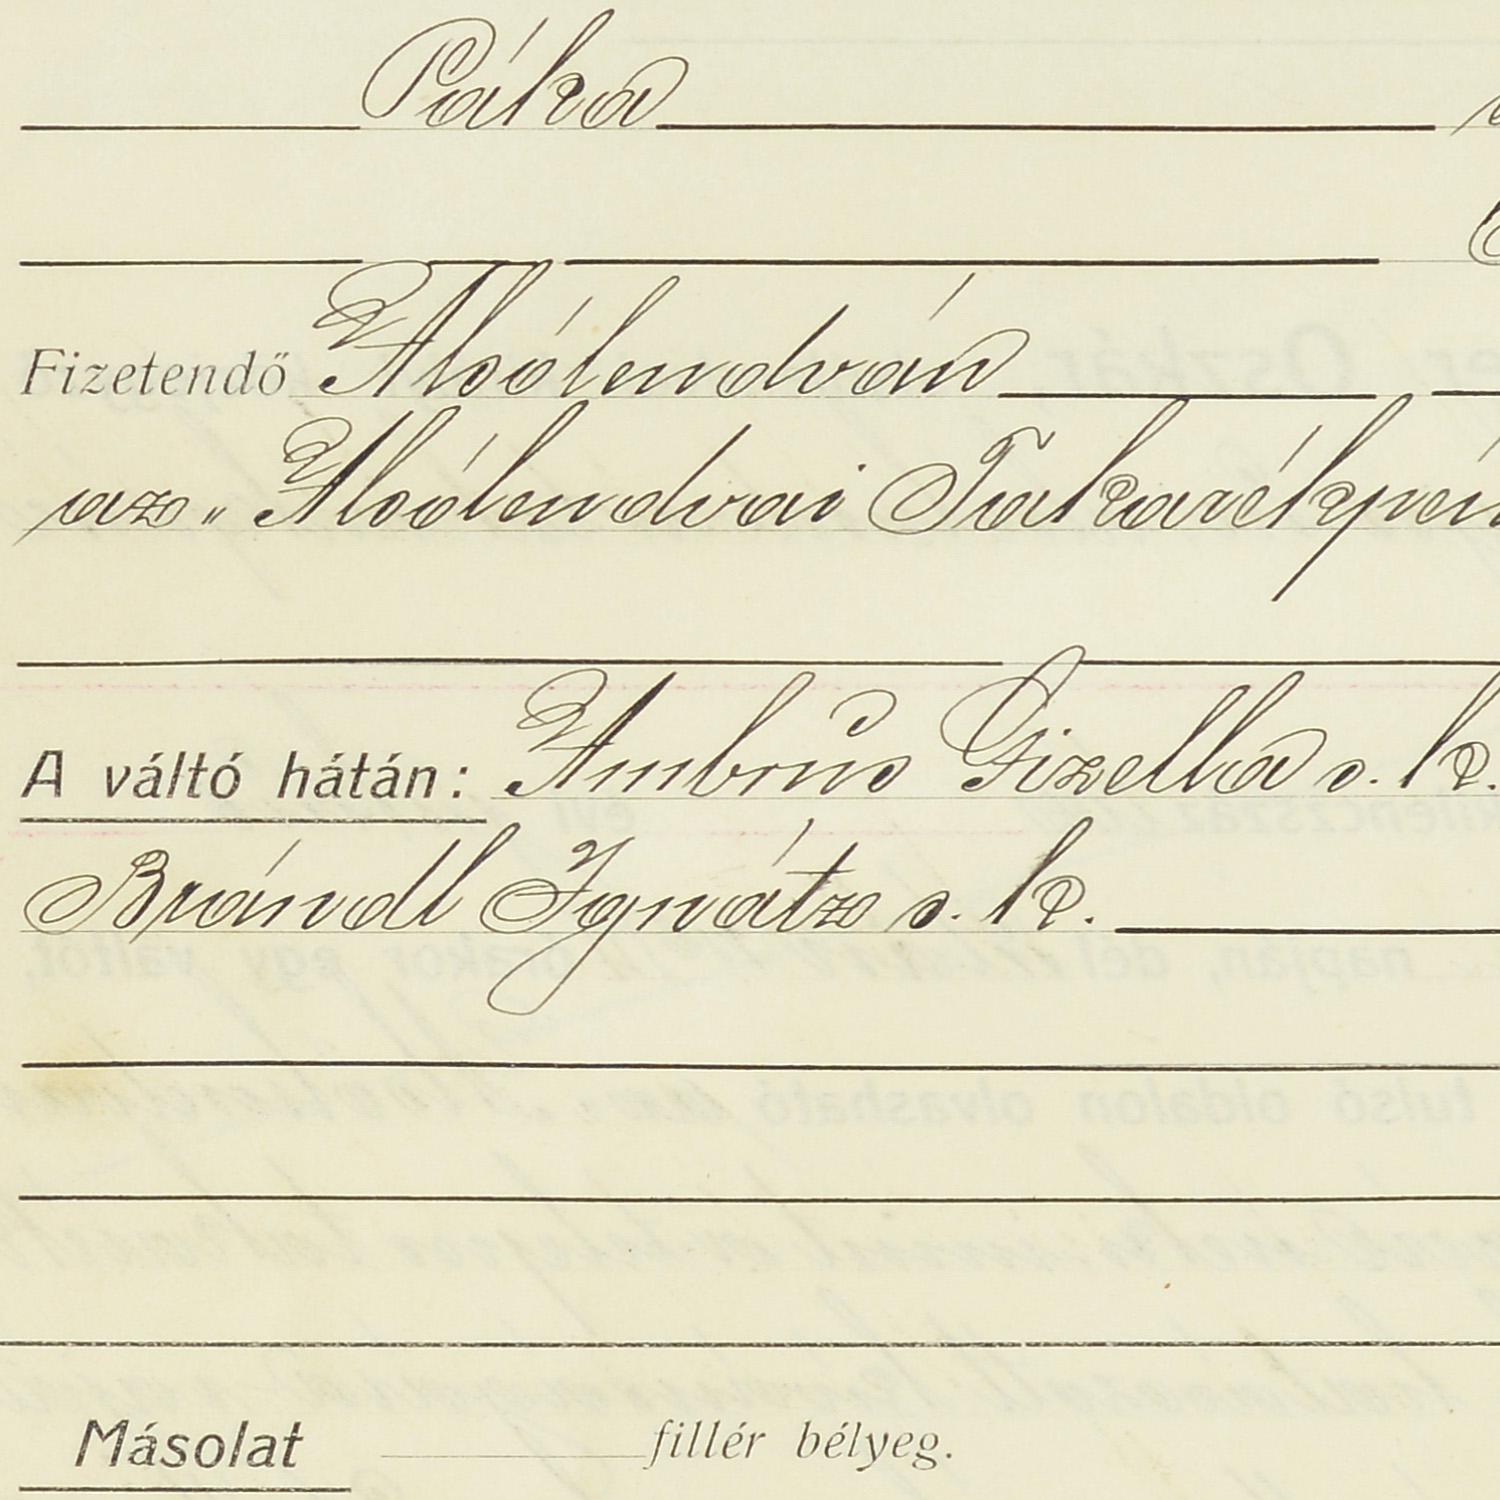 Páka
Fizetendő Alsólendván
az „Alsólendvai Takarékpén
A váltó hátán: Ambrus Gizella s. k.
Brándl Ignátz s. k.
Másolat fillér bélyeg.